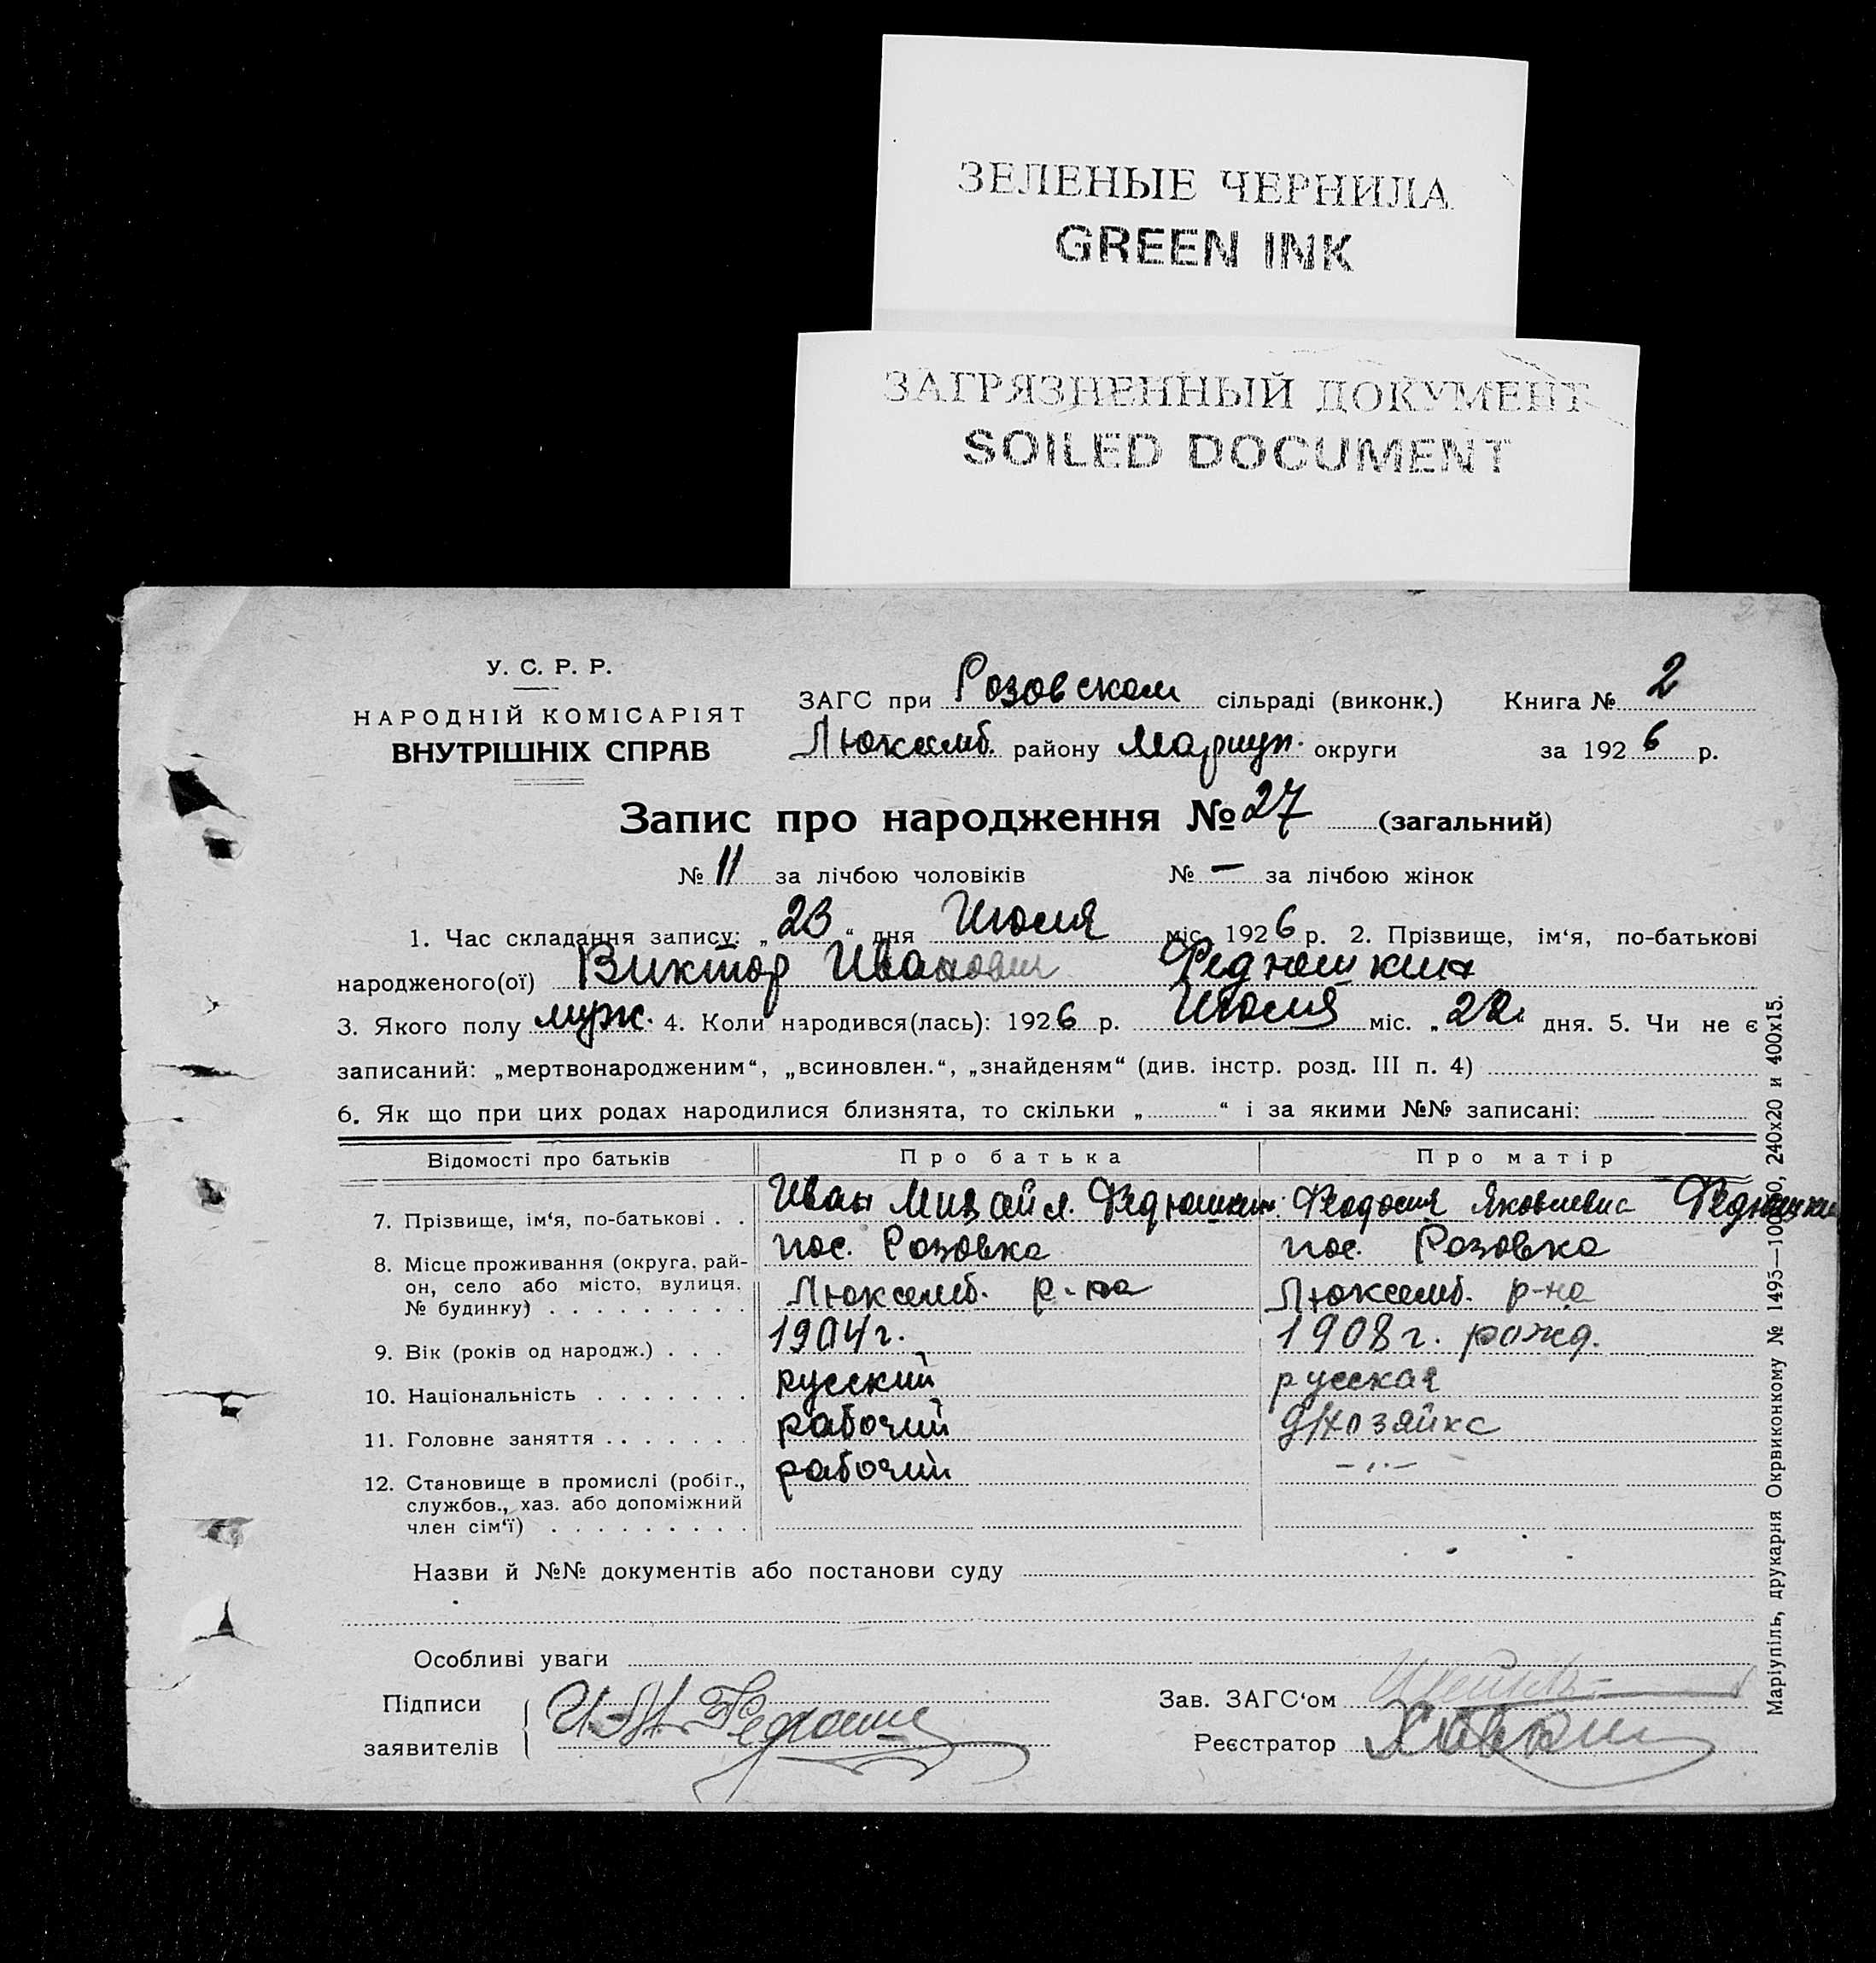 ЗЕЛЕНЫЕ ЧЕРНИЛА
GREEN INK
ЗАГРЯЗНЕННЫЙ ДОКУМЕНТ
SOILED DOCUMENT
27
У. С. Р. Р.
НАРОДНІЙ КОМІСАРІЯТ
ВНУТРІШНІХ СПРАВ
ЗАГС при Розовском сільраді (виконк.) Книга № 2
Люксемб. району Мариуп. округи за 1926 р.
Запис про народження № 27 (загальний)
№ 11 за лічбою чоловіків № — за лічбою жінок
1. Час складання запису: „23“ дня Июля міс. 1926 р. 2. Прізвище, ім‘я, по-батькові
народженого(ої) Виктор Иванович Федюшкин
3. Якого полу муж. 4. Коли народився(лась): 1926 р. Июля міс. „22“ дня. 5. Чи не є
записаний: „мертвонародженим“, „всиновлен.“, „знайденям“ (див. інстр. розд. III п. 4)
6. Як що при цих родах народилися близнята, то скільки „ “ і за якими №№ записані:
Відомості про батьків Про батька Про матір
7. Прізвище, ім‘я, по-батькові . . Иван Михайл. Федюшкин. Феодосия Яковлевна Федюшкин
8. Місце проживання (округа, рай- пос. Розовка пос. Розовка
он, село або місто, вулиця, Люксемб. р-на Люксемб. р-на
№ будинку)
9. Вік (років од народж.) . . . 1904 г. 1908 г. рожд.
10. Національність русский русская
11. Головне заняття рабочий д/хозяйка
12. Становище в промислі (робіт., рабочий - ,, -
службов., хаз. або допоміжний
член сім‘ї)
Назви й №№ документів або постанови суду
Особливі уваги
Підписи
заявителів И. М. Федюшк
Зав. ЗАГС‘ом
Реєстратор
Маріупіль, друкарня Окрвиконкому № 1495—10000, 240x20 и 400x15.